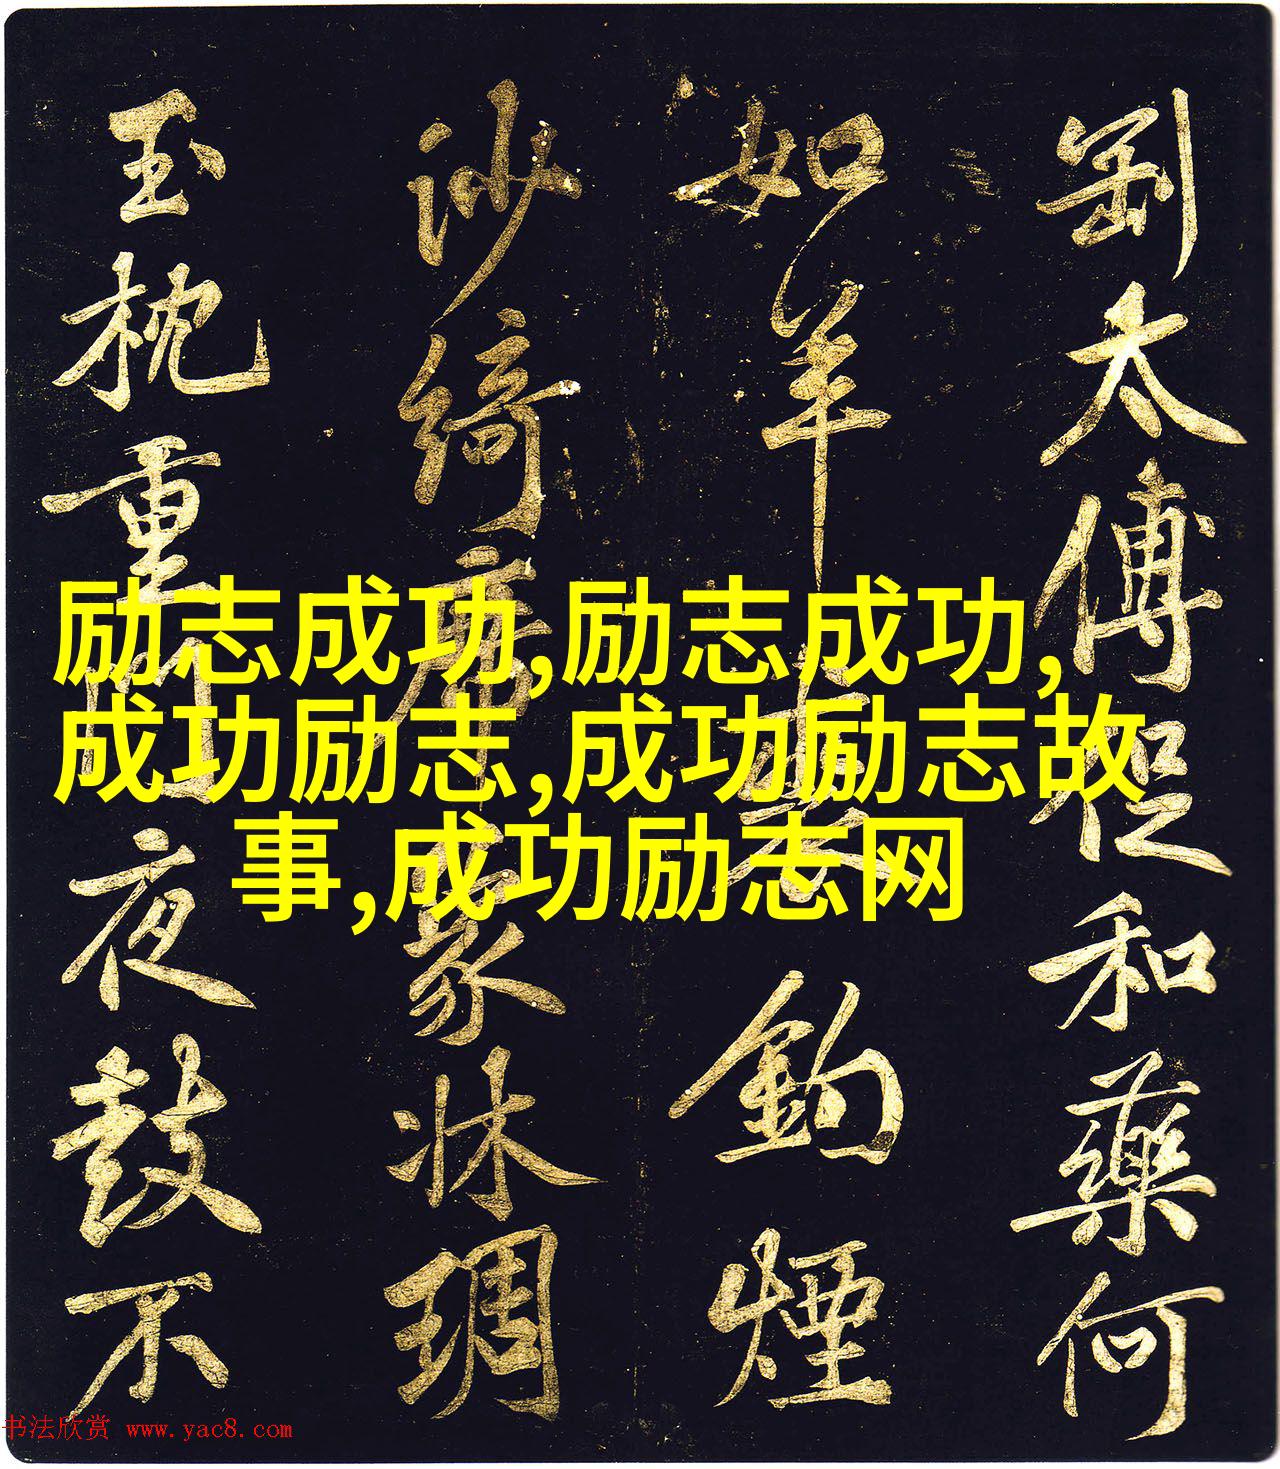 太傅和藥何
如羊煙
沙綺席象牀琱
玉枕重門夜鼓不
励志成功,励志成功,
成功励志,成功励志故
事,成功励志网
书法欣赏 www.yac8.com